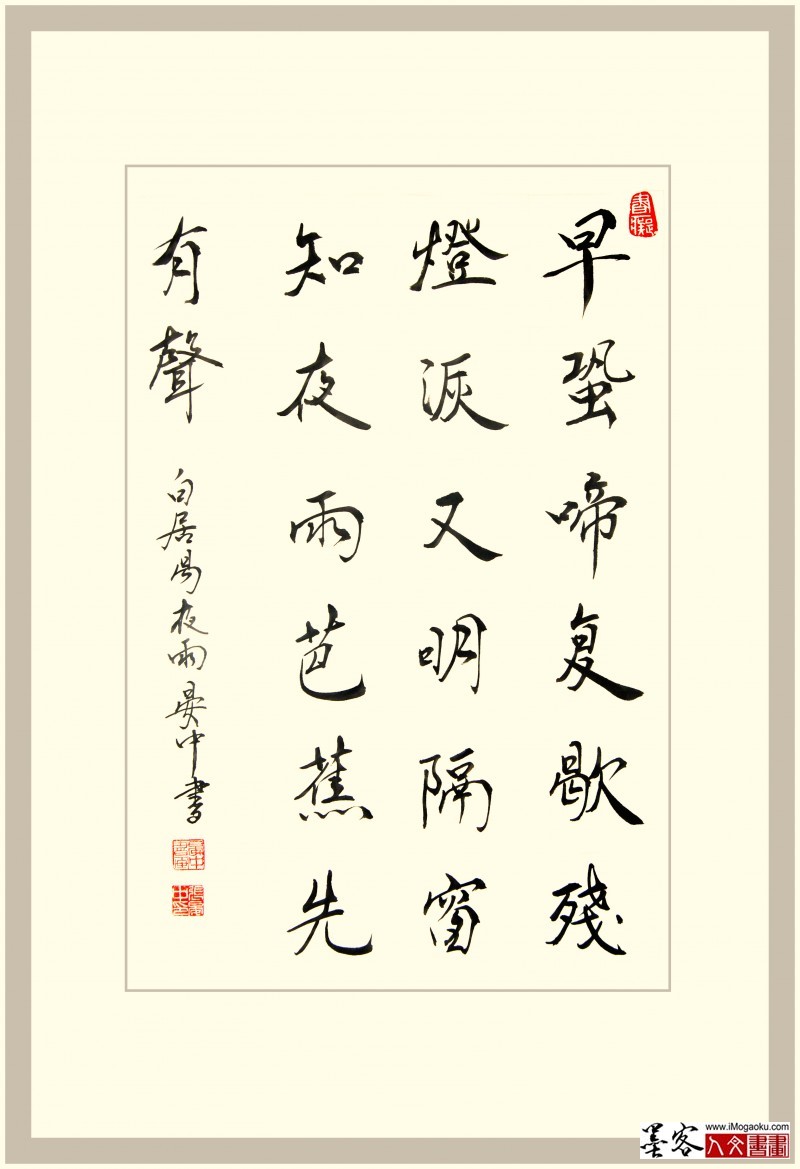 早蛩啼复歇殘
燈滅又明隔窗
知夜雨芭蕉先
有聲
白居易夜雨 晏中書
墨客
www.iMogaoku.com
人文書畫